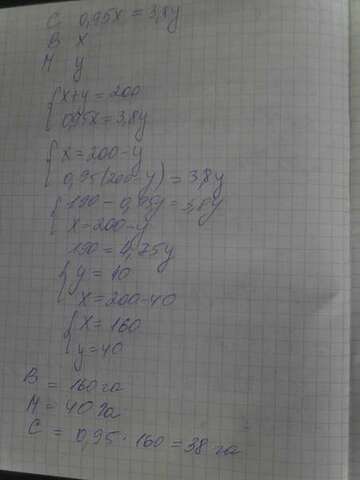 С 0,95x = 3,8y
В x
М y
{ x+y = 200
0,95x = 3,8y
{ x = 200-y
0,95(200-y) = 3,8y
{ 190 - 0,95y = 3,8y
x = 200-y
190 = 4,75y
{ y = 40
x = 200-40
{ x = 160
y = 40
В = 160 га
М = 40 га
С = 0,95 · 160 = 38 га